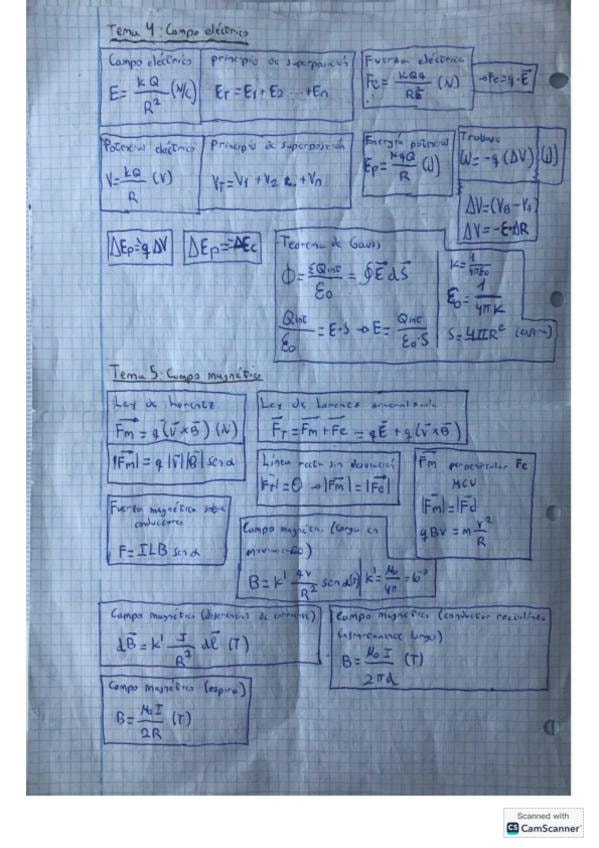 Tema 4: Campo eléctrico
Campo eléctrico
E = kQ/R² (N/C)
principio de superposición
E_T = E_1 + E_2 ... + E_n
Fuerza eléctrica
Fe = KQq/R² (N)
→ Fe = q·E⃗
Potencial eléctrico
V = kQ/R (V)
Principio de superposición
V_T = V_1 + V_2 ... + V_n
Energía potencial
Ep = kqQ/R (J)
Trabajo
W = -q (ΔV) (J)
ΔV = (V_B - V_A)
ΔV = -E·ΔR
ΔEp = q ΔV
ΔEp = -ΔEc
Teorema de Gauss
Φ = ΣQint/ε_0 = ∮E⃗ dS⃗
Qint/ε_0 = E·S → E = Qint/ε_0·S
K = 1/4πε_0
ε_0 = 1/4πK
S = 4πR² (esfera)
Tema 5: Campo magnético
Ley de Lorentz
F⃗m = q(v⃗ x B⃗) (N)
|F⃗m| = q |v⃗| |B⃗| sen α
Ley de Lorentz generalizada
F⃗_T = F⃗m + F⃗e = qE⃗ + q(v⃗ x B⃗)
Línea recta sin desviación
= 0 → |F⃗m| = |F⃗e|
F⃗m perpendicular Fe
MCU
qBv = m v²/R
Fuerza magnética sobre
conductores
F = ILB sen α
Campo magnét. (carga en
movimiento)
B = k' qv/R²
k' = μ_0/4π
Campo magnético (diferencial de corriente)
dB⃗ = k' I/R² dl⃗ (T)
Campo magnético (conductor rectilíneo
largo)
B = μ_0 I/2πd (T)
Campo magnético (espira)
B = μ_0 I/2R (T)
Scanned with
CS CamScanner